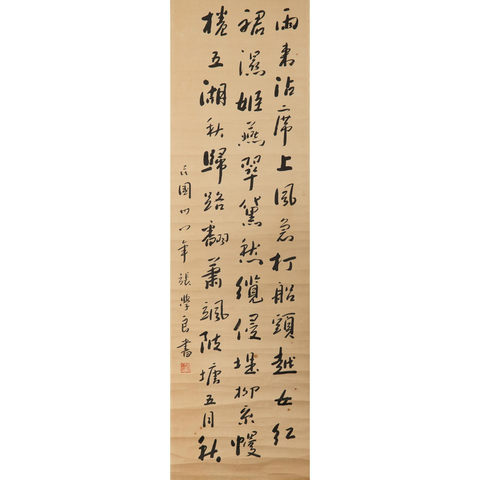 雨來沾席上風急打船頭越女紅
裙濕姬燕翠黛愁纜侵堤柳系幔
捲五湖秋歸路翻蕭颯陂塘五月秋
民國卅八年張學良書